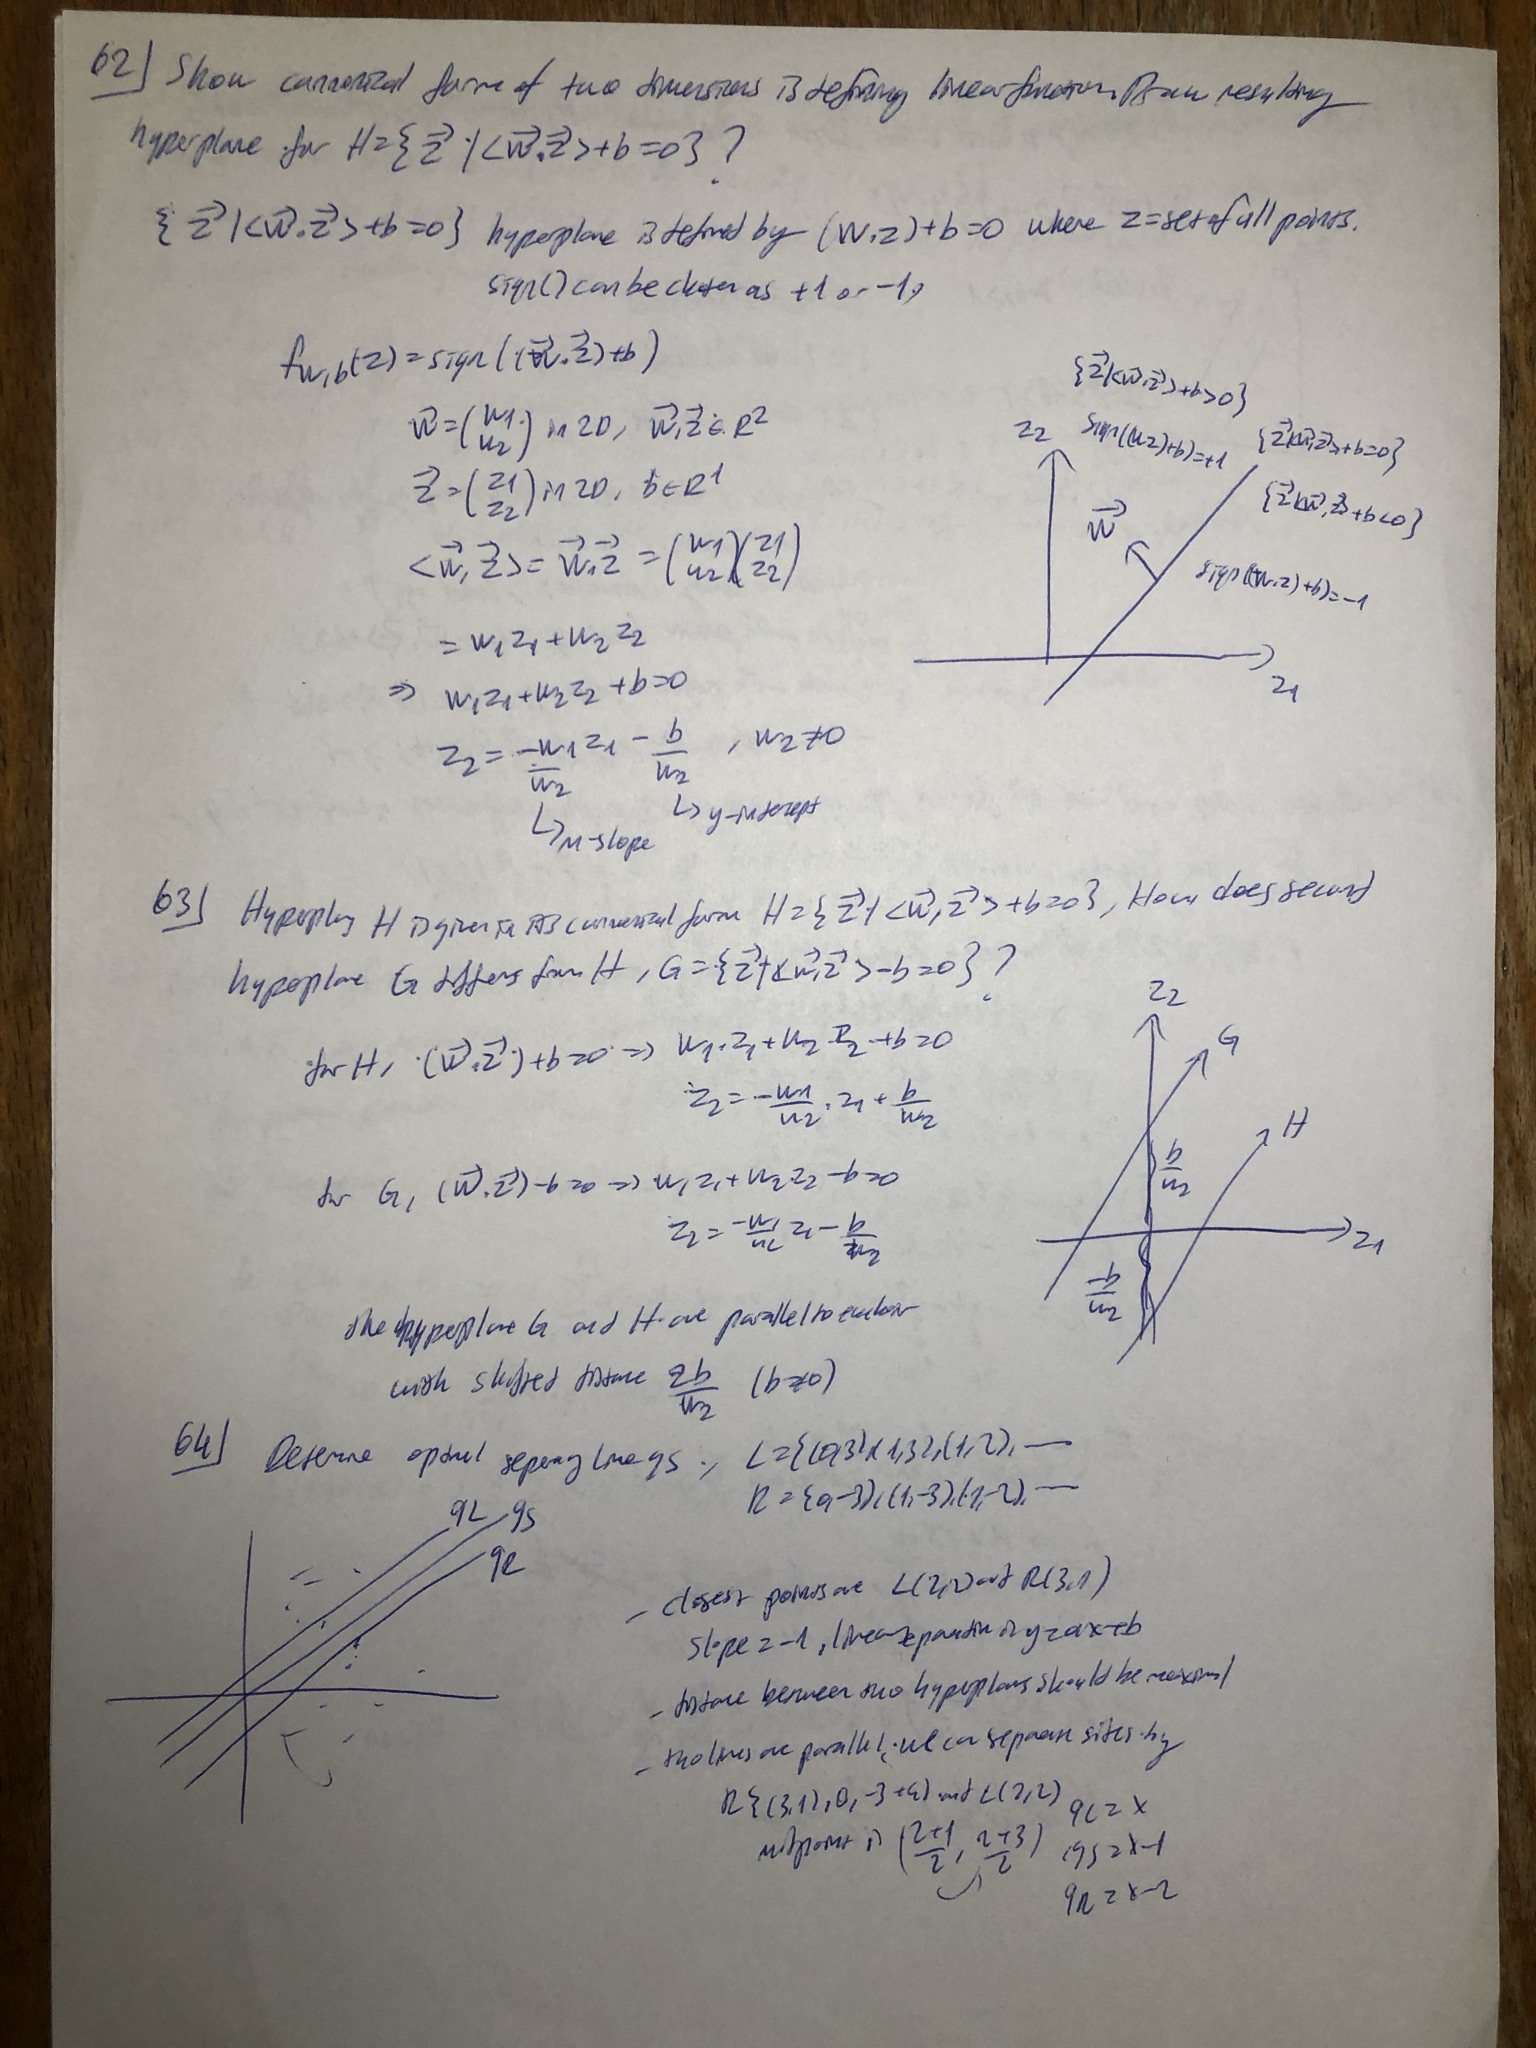 62] Show cannonical form of two dimensions is defining linear function. Draw resulting
hyperplane for H={z⃗ | <w⃗.z⃗>+b=0}?
{z⃗ | <w⃗.z⃗>+b=0} hyperplane is defined by (w.z)+b=0 where z=set of all points.
sign() can be chosen as +1 or -1,
fw,b(z)=sign((w⃗.z⃗)+b)
w⃗=(w1 w2) in 2D, w⃗,z⃗ ∈ R²
z⃗=(z1 z2) in 2D, b∈R¹
<w⃗,z⃗>=w⃗.z⃗=(w1 w2)(z1 z2)
=w1z1+w2z2
⇒ w1z1+w2z2+b=0
z2=-w1/w2 z1 - b/w2, w2≠0
↳ m-slope
↳ y-intercept
{z⃗|<w⃗,z⃗>+b>0}
z2
sign((w.z)+b)=+1
{z⃗|<w⃗,z⃗>+b=0}
{z⃗|<w⃗,z⃗>+b<0}
w⃗
sign((w.z)+b)=-1
z1
63] H is given in its cannonical form H={z⃗ | <w⃗,z⃗>+b=0}, How does second
hyperplane G differs from H, G={z⃗ | <w⃗,z⃗>-b=0}?
for H, (w⃗.z⃗)+b=0 ⇒ w1.z1+w2.z2+b=0
z2=-w1/w2.z1+b/w2
for G, (w⃗.z⃗)-b=0 ⇒ w1z1+w2z2-b=0
z2=-w1/w2 z1-b/w2
the hyperplane G and H are parallel to
with shifted distance 2b/w2 (b≠0)
z2
G
H
b/w2
z1
-b/w2
64] optimal line gs, L={(0,3),(1,3),(1,2),—
R={0,-3),(1,-3),(1,-2),—
gL gs
gR
- closest points are L(2,2) and R(3,1)
slope=-1, linear separation is y=ax+b
- distance between two hyperplans should be maximal
- two lines are parallel, we can separate sites by
R{(3,1), 0, -3 and L(2,2)
midpoint is (2+1/2, 2+3/2)
gL=x
gs=x-1
gR=x-2